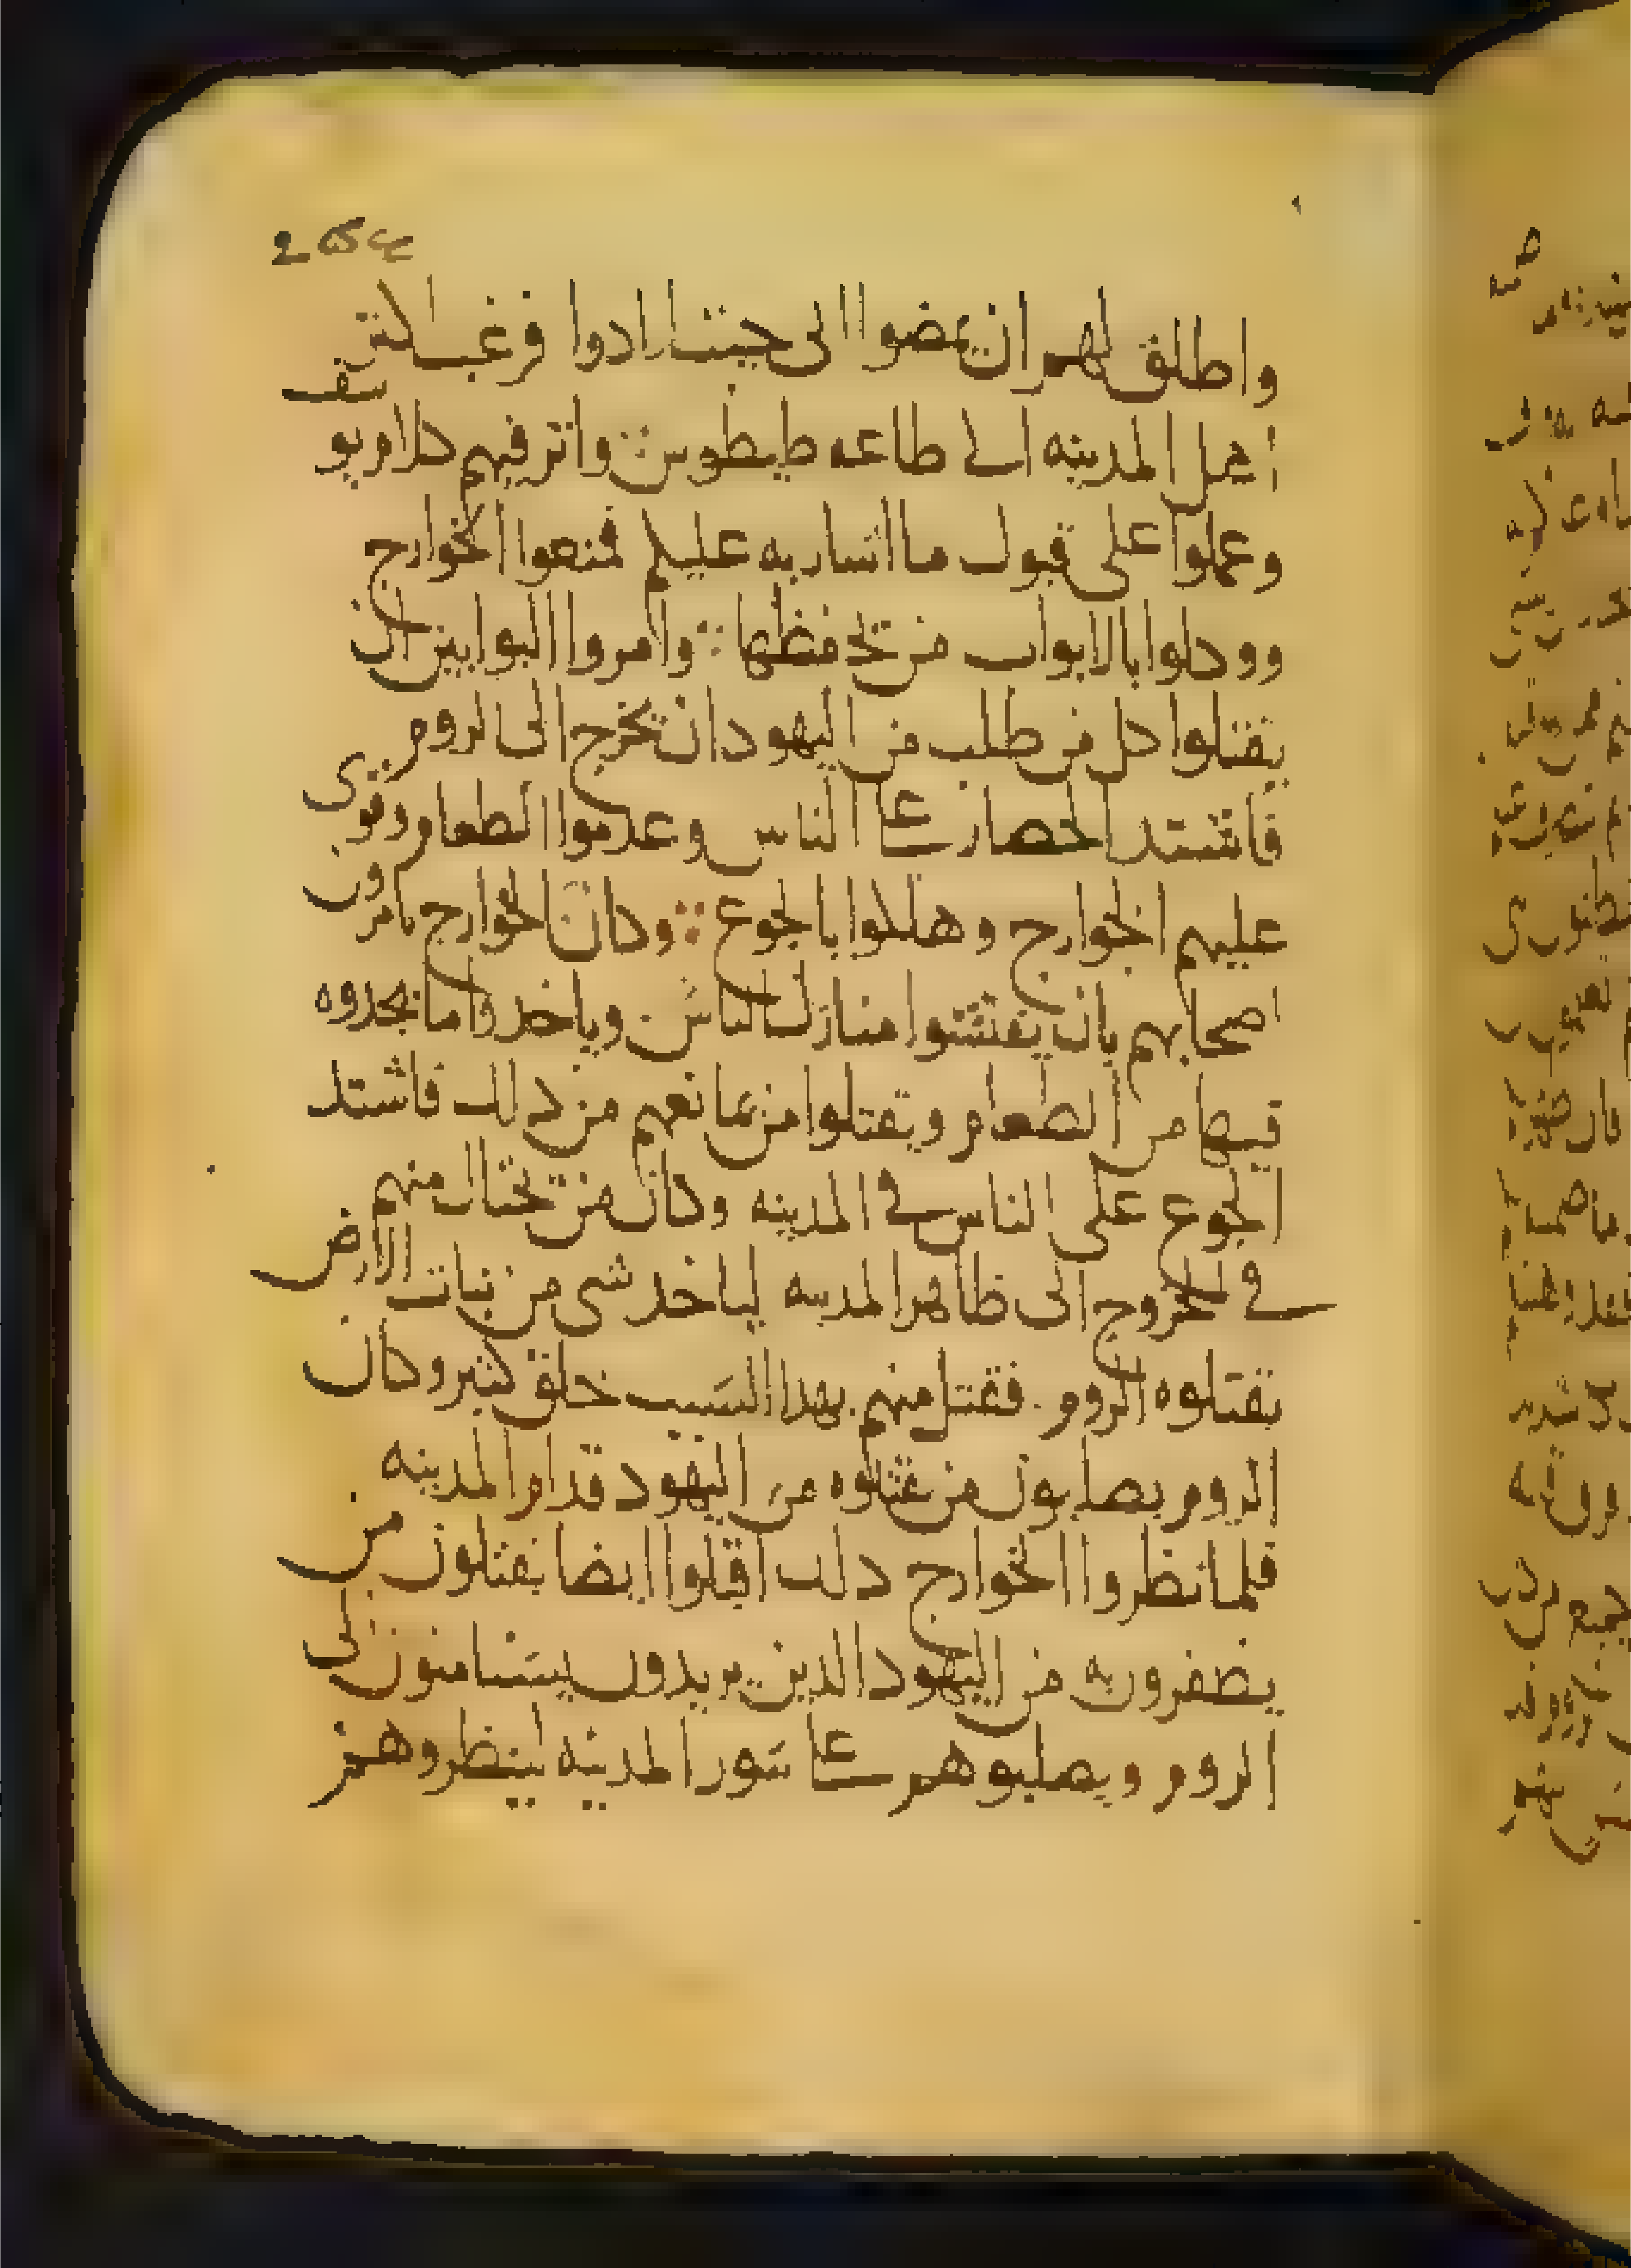 واطلق لهم ان يمضوا الى حيث ارادوا فرغب اكثر
اهل المدينه الى طاعه طيطوس واثر فيهم كلام يوسف
وعملوا على قبول ما اشار به عليهم فمنعوا الخوارج
ووكلوا بالابواب من يحفظها وامروا البوابين ان
يقتلوا كل من طلب من اليهود ان يخرج الى الروم
فاشتد الحصار على الناس وعدموا الطعام وقوى
عليهم الخوارج وهلكوا بالجوع وكان الخوارج يامرون
اصحابهم بان يفتشوا منازل الناس وياخدوا ما يجدوه
فيها من الطعام ويقتلوا من يمانعهم من دلك فاشتد
الجوع على الناس في المدينه وكان من يحتال منهم
في الخروج الى ظاهر المدينه لياخد شى من نبات الارض
يقتلوه الروم فقتل منهم بهدا السبب خلق كثير وكان
الروم يصلبون من يقتلوه من اليهود قدام المدينه
فلما نظروا الخوارج دلك اقبلوا ايضا يقتلون من
يظفرون به من اليهود الدين يريدون يستامنون الى
الروم ويصلبوهم على سور المدينه لينظروهم